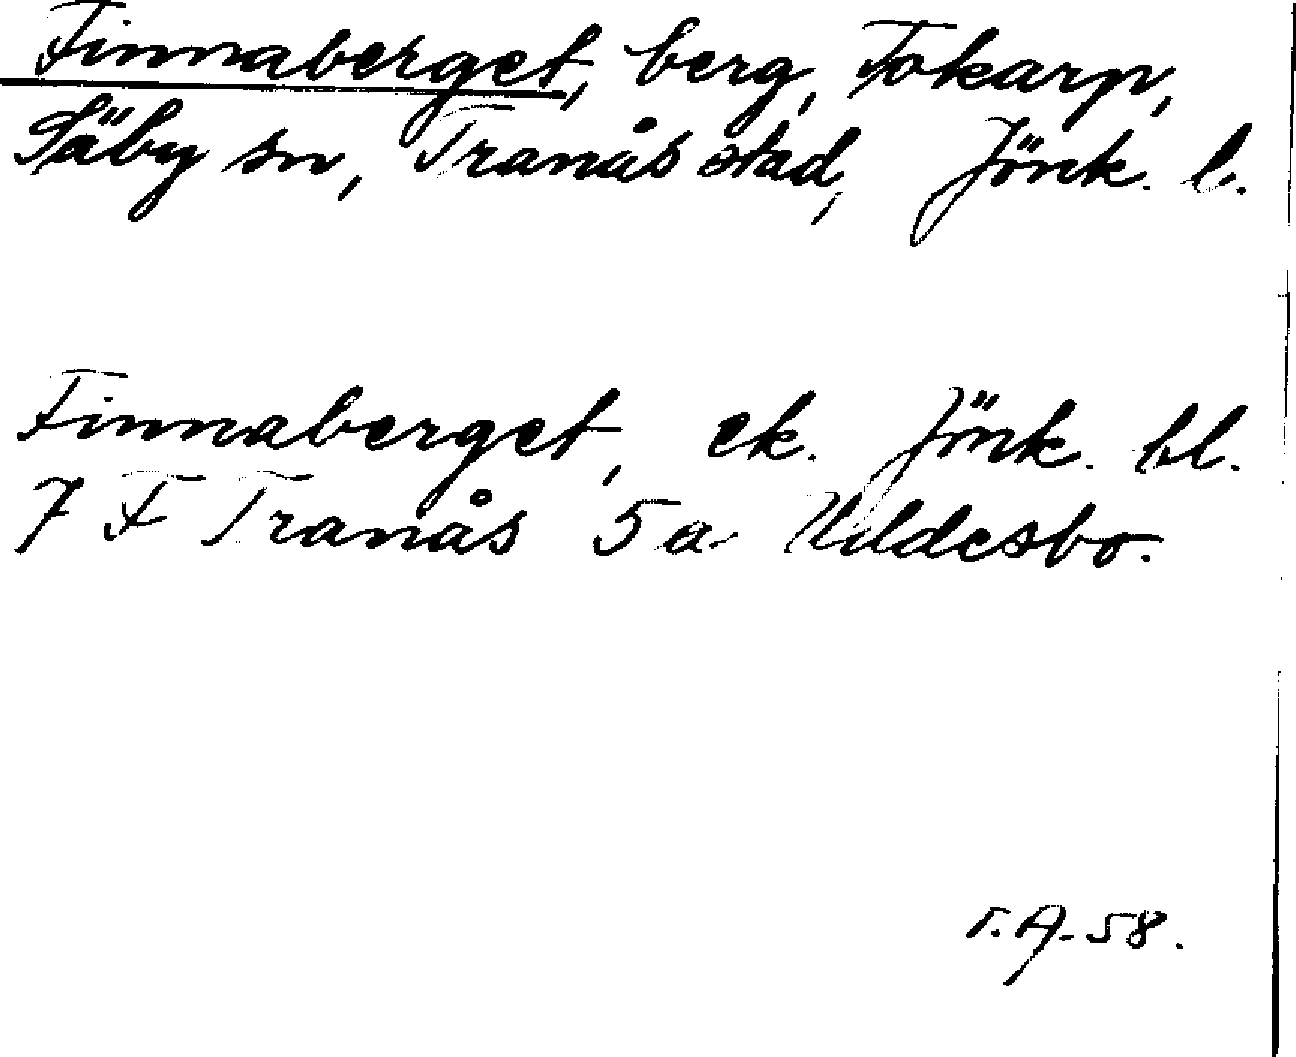 Finnaberget, berg, Tokarp,
Säby sn, Tranås stad, Jönk. l.
Finnaberget, ek. Jönk. bl.
7 F Tranås 5 a Uddesbo.
r. A. 58.